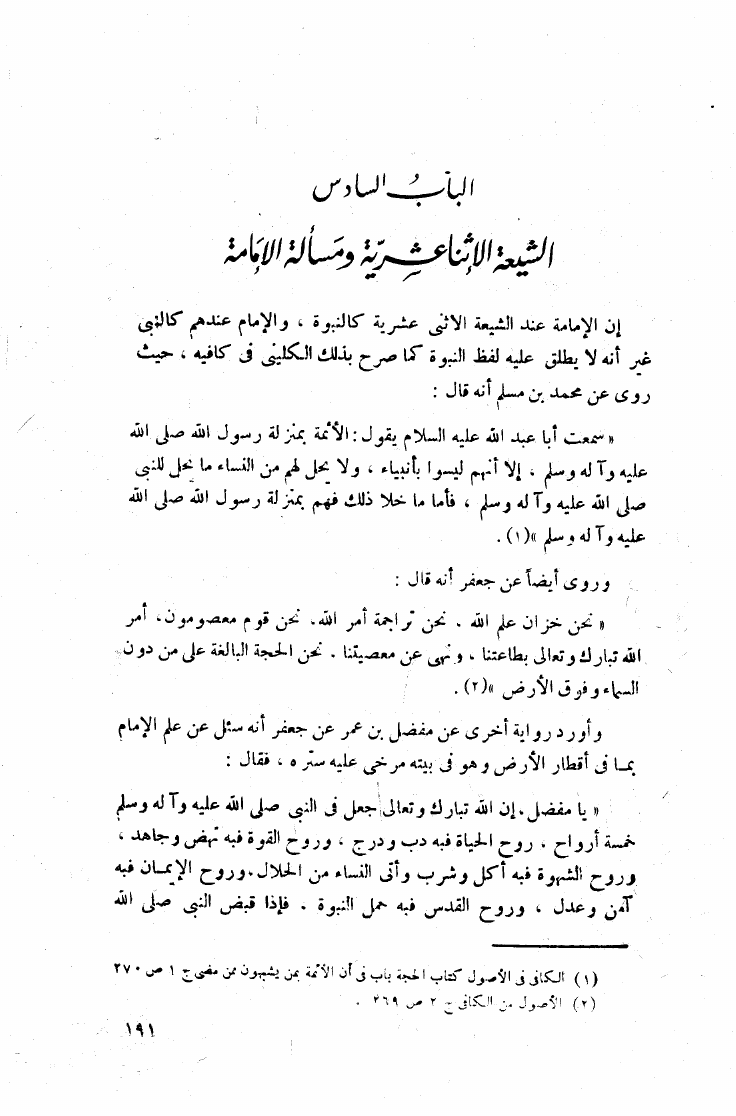 الباب السادس
الشيعة الإثنا عشرية ومسألة الإمامة
إن الإمامة عند الشيعة الاثنى عشرية كالنبوة ، والإمام عندهم كالنبى
غير أنه لا يطلق عليه لفظ النبوة كما صرح بذلك الكلينى فى كافيه ، حيث
روى عن محمد بن مسلم أنه قال :
« سمعت أبا عبد الله عليه السلام يقول : الأئمة بمنزلة رسول الله صلى الله
عليه وآله وسلم ، إلا أنهم ليسوا بأنبياء ، ولا يحل لهم من النساء ما يحل للنبى
صلى الله عليه وآله وسلم ، فأما ما خلا ذلك فهم بمنزلة رسول الله صلى الله
عليه وآله وسلم »(١) .
وروى أيضاً عن جعفر أنه قال :
« نحن خزان علم الله . نحن تراجمة أمر الله . نحن قوم معصومون، أمر
الله تبارك وتعالى بطاعتنا . ونهى عن معصيتنا . نحن الحجة البالغة على من دون
السماء وفوق الأرض »(٢) .
وأورد رواية أخرى عن مفضل بن عمر عن جعفر أنه سئل عن علم الإمام
بما فى أقطار الأرض وهو فى بيته مرخى عليه ستره ، فقال :
« يا مفضل . إن الله تبارك وتعالى جعل فى النبى صلى الله عليه وآله وسلم
خمسة أرواح . روح الحياة فبه دب ودرج ، وروح القوة فبه نهض وجاهد ،
وروح الشهوة فبه أكل وشرب وأتى النساء من الحلال . وروح الإيمان فبه
آمن وعدل ، وروح القدس فبه حمل النبوة . فإذا قبض النبى صلى الله
(١) الكافى فى الأصول كتاب الحجة باب فى أن الأئمة بمن يشبهون ممن مضى ج ١ ص ٢٧٠
(٢) الأصول من الكافى ج ٢ ص ٢٦٩ .
١٩١